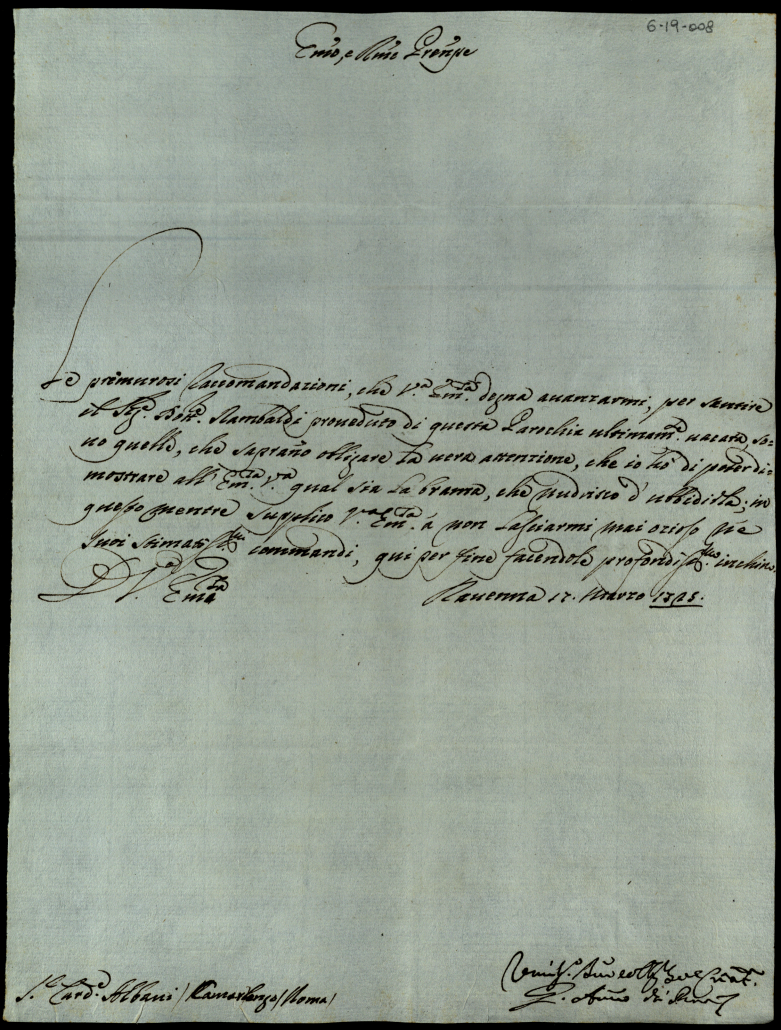 6-19-008
Emo, e Rmo Prenpe
Le premurosi raccomandazioni, che V.ra Em.za degna auanzarmi, per sentire
il Sig.r Rambaldi proueduto di questa Parochia ultimam.e uacata, so-
no quelle, che sapran̄o obligare la uera attenzione, che io hò di poter di-
mostrare all' Em.za V.ra qual sia la brama, che nudrisco d' ubbidirla; in
questo mentre supplico V.ra Em.za à non lasciarmi mai ozioso ne
suoi stimatiss.mi commandi, qui per fine facendole profondiss.mo inchino.
D V.ra Em.za
Rauenna 17. Marzo
S.r Card.e Albani / Camarlengo / Roma /